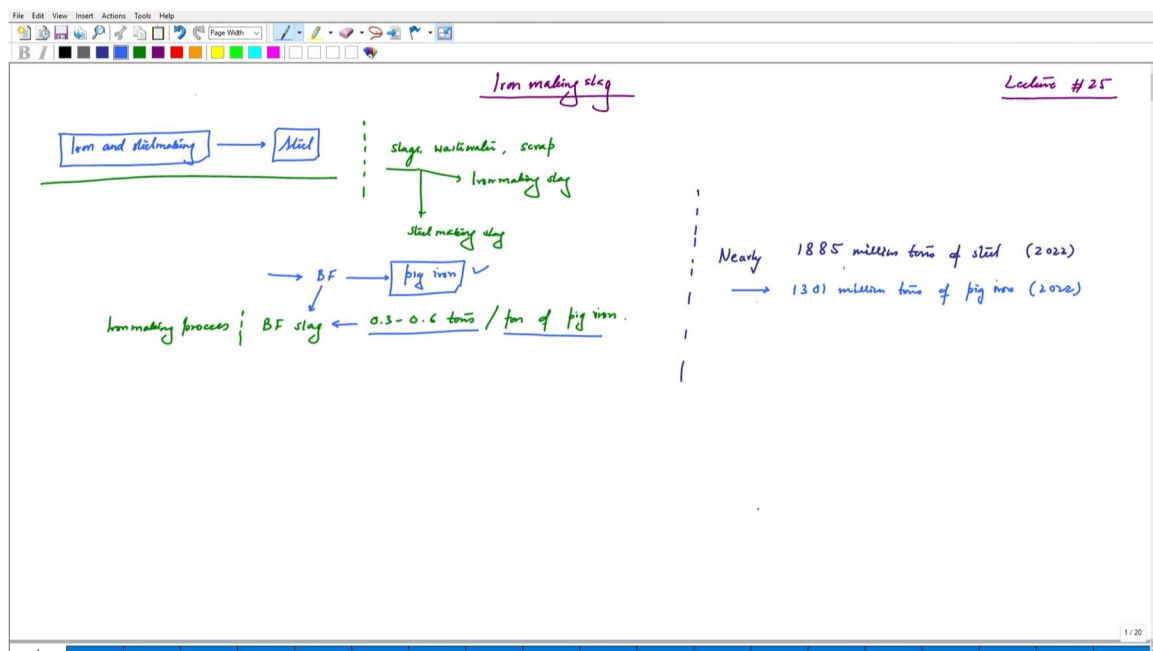 File Edit View Insert Actions Tools Help
Page Width
B I
Iron making slag
Lecture #25
Iron and steelmaking → Steel
slags, wastewater, scrap
→ Ironmaking slag
steel making slag
→ BF → pig iron ✓
Ironmaking process BF slag ← 0.3-0.6 tons / ton of pig iron.
Nearly 1885 million tons of steel (2022)
→ 1301 million tons of pig iron (2022)
1 / 20